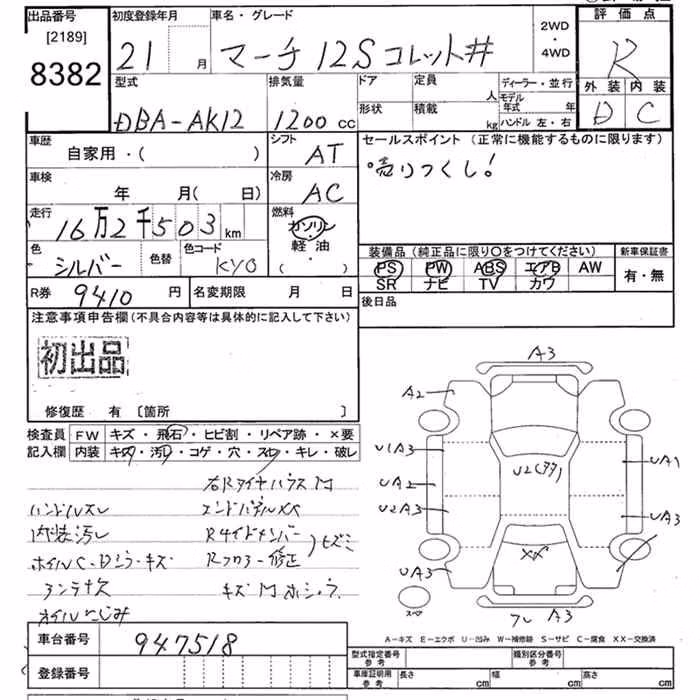 出品番号
[2189]
8382
初度登録年月
21
月
車名・グレード
マーチ 12S コレット#
2WD
・
4WD
評価点
R
外装 内装
D C
型式
DBA-AK12
排気量
1200 cc
ドア
定員
人
形状
積載
kg
ディーラー・並行
モデル
年式 年
ハンドル 左・右
車歴
自家用・( )
シフト
AT
セールスポイント (正常に機能するものに限ります)
売りつくし!
車検
年 月( 日)
冷房
AC
走行
16万2千503km
燃料
ガソリン
軽油
( ・ )
色
シルバー
色替
色コード
KY0
装備品(純正品に限り〇をつけてください)
PS PW ABS エアB AW
SR ナビ TV カワ
新車保証書
有・無
R券
9410 円
名変期限 月 日
後日品
注意事項申告欄(不具合内容等は具体的に記入して下さい)
初出品
修復歴 有 〔箇所 〕
検査員
記入欄
FW キズ・飛石・ヒビ割・リペア跡・×要
内装 キズ・汚れ・コゲ・穴・スレ・キレ・破レ
ハンドルスレ
内装汚レ
ホイルC・Dシラ・キズ
アンテナ欠
オイルにじみ
エンドパネルXX
Rサイドメンバー
Rフロアー修正
A3
A2
U1A3
UA2
U2A3
UA3
U2(タタ)
XX
UA1
UA3
スペア
フレ
A3
A-キズ E-エクボ U-凹み W-補修跡 S-サビ C-腐食 XX-交換済
車台番号
947518
登録番号
型式指定番号
参考
類別区分番号
参考
車庫証明用
参考
長さ cm
幅 cm
高さ cm